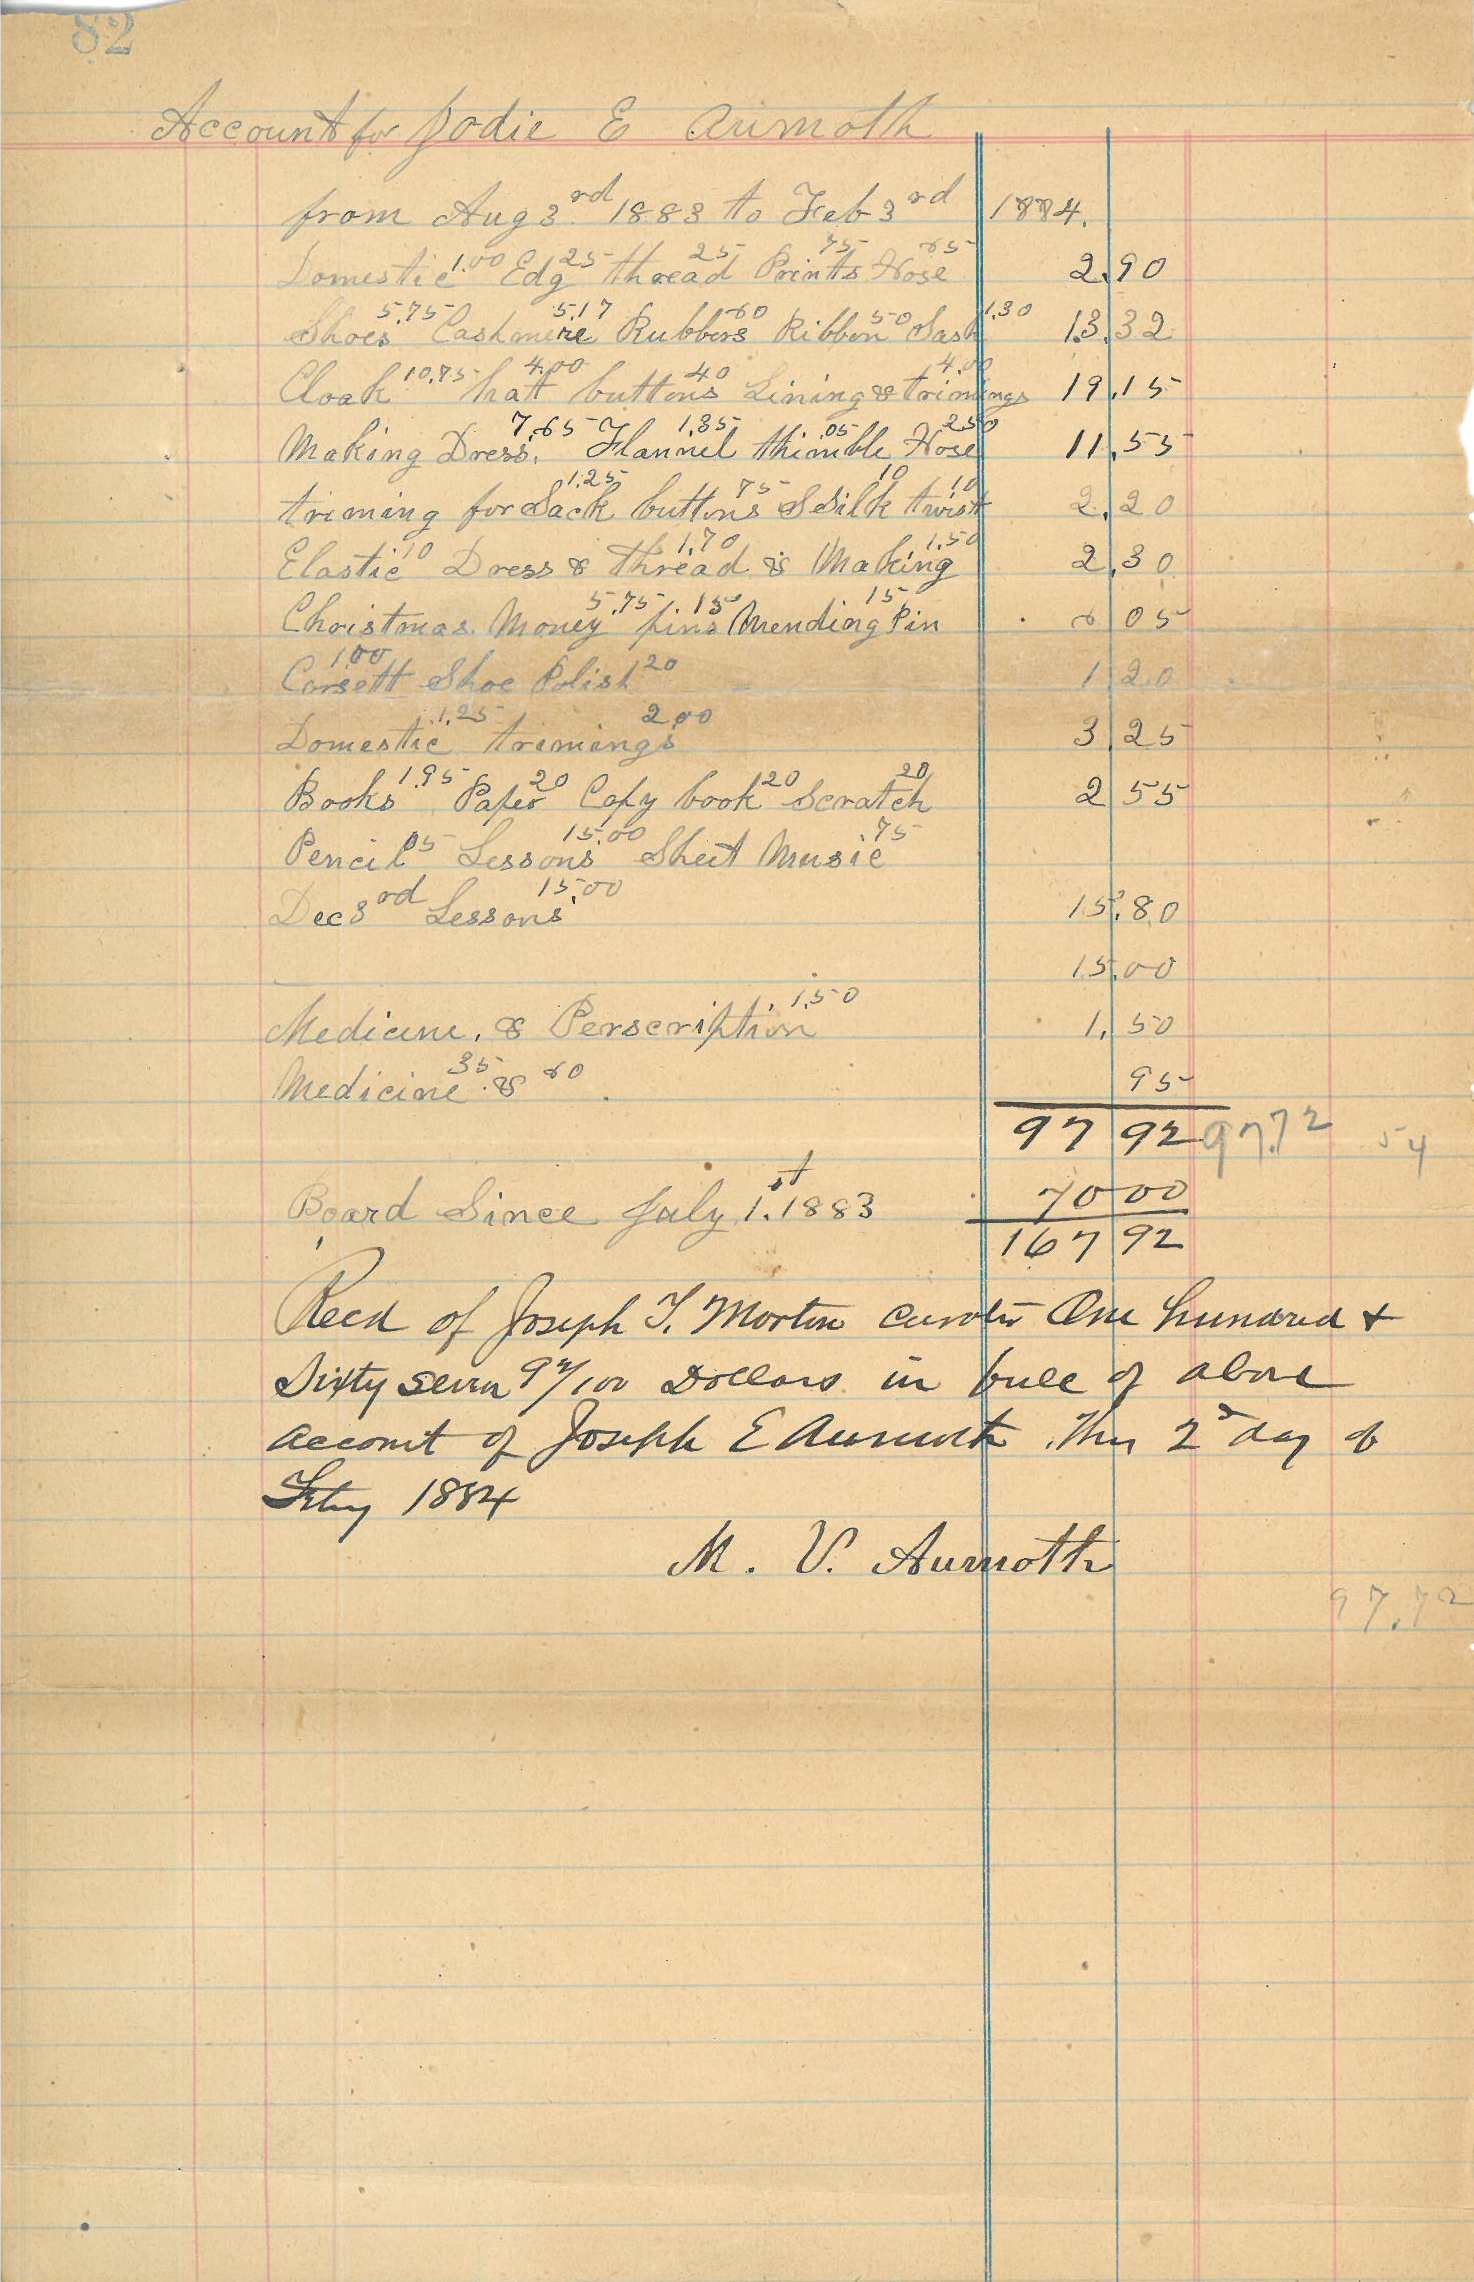 82
Account for Jodie E Aumoth
from Aug 3rd 1883 to Feb 3rd 1884.
Domestic 1.00 Edg 25 thread 25 Prints 75 Hose 65 2.90
Shoes 5.75 Cashmere 5.17 Rubbers 60 Ribbon 50 Sash 1.30 13.32
Cloak 10.75 hatt 4.00 buttons 40 Lining & trimings 4.00 19.15
Making Dress. 7.65 Flannel 1.35 thimble .05 Hose 2.50 11.55
triming for Sack 1.25 buttons 75 S Silk 10 twist 10 2.20
Elastic 10 Dress & thread 1.70 & Making 1.50 2.30
Christmas Money 5.75 pins .15 Mending Pin 15 6 05
Corsett 1.00 Shoe Polish 20 1 20
Domestic 1.25 trimings 2.00 3 25
Books 1.95 Paper 20 Copy book 20 Scratch 20 2 55
Pencil 05 Lessons 15.00 Sheet Music .75
Dec 3rd Lessons 15.00 15.80
15.00
Medicine, & Perscription 1.50 1.50
Medicine 35 & 60 95
97 92 97.72 54
Board Since July 1st. 1883 70 00
167 92
Recd of Joseph T. Morton One hundred &
Sixty seven 92/100 Dollars in full of above
account of Joseph E Aumoth This 2d day of
Feby 1884
M. V. Aumoth
97.72